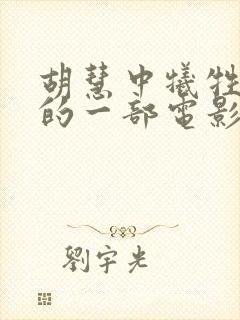 胡慧中犧牲
的一部電影
劉宇光